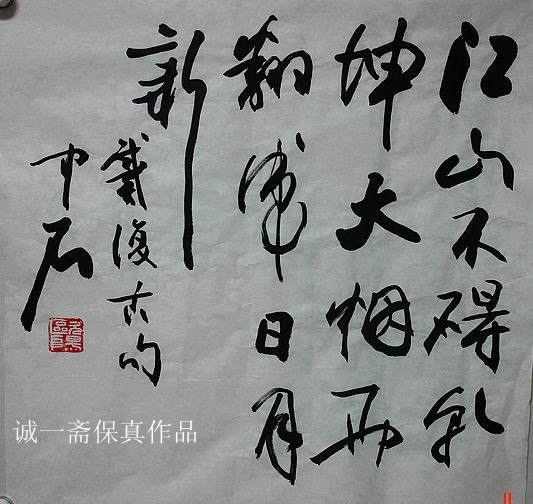 江山不碍乾
坤大烟雨
翻成日月
新
戴復古句
中石
诚一斋保真作品